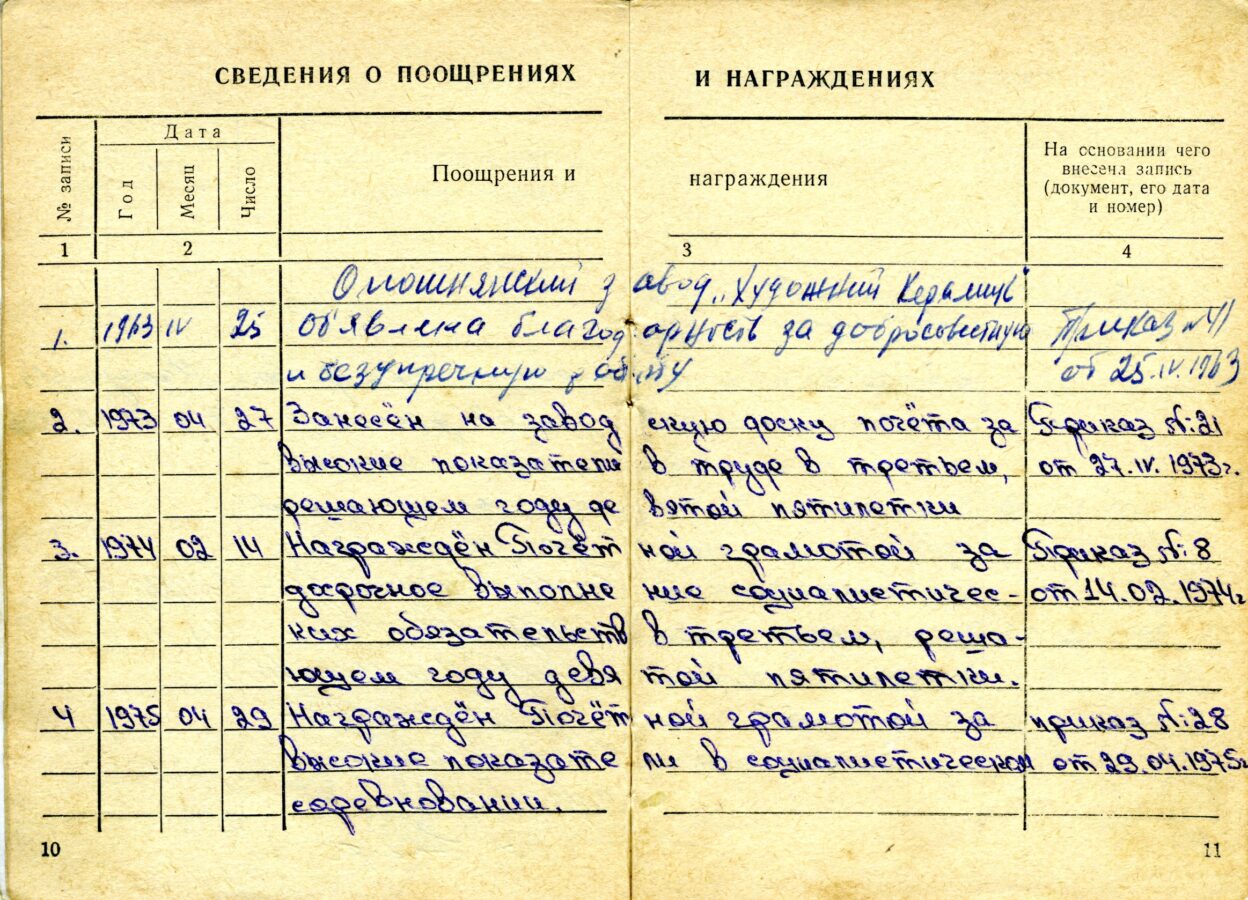 СВЕДЕНИЯ О ПООЩРЕНИЯХ И НАГРАЖДЕНИЯХ
№ записи Дата Поощрения и награждения На основании чего внесена запись (документ, его дата и номер)
Год Месяц Число
1 2 3 4
Опошнянский завод „Художний Керамик"
1. 1963 IV 25 Об'явлена благодарность за добросовестную Приказ №41
и безупречную работу от 25.IV.1963
2. 1973 04 27 Занесён на заводскую доску почёта за Приказ №: 21
высокие показатели в труде в третьем, от 27.IV.1973г.
решающем году девятой пятилетки
3. 1974 02 14 Награждён Почётной грамотой за Приказ №: 8
досрочное выполнение социалистичес- от 14.02.1974г
ких обязательств в третьем, реша-
ющем году девятой пятилетки.
4 1975 04 29 Награждён Почётной грамотой за приказ №: 28
высокие показатели в социалистическом от 29.04.1975г
соревновании.
10 11